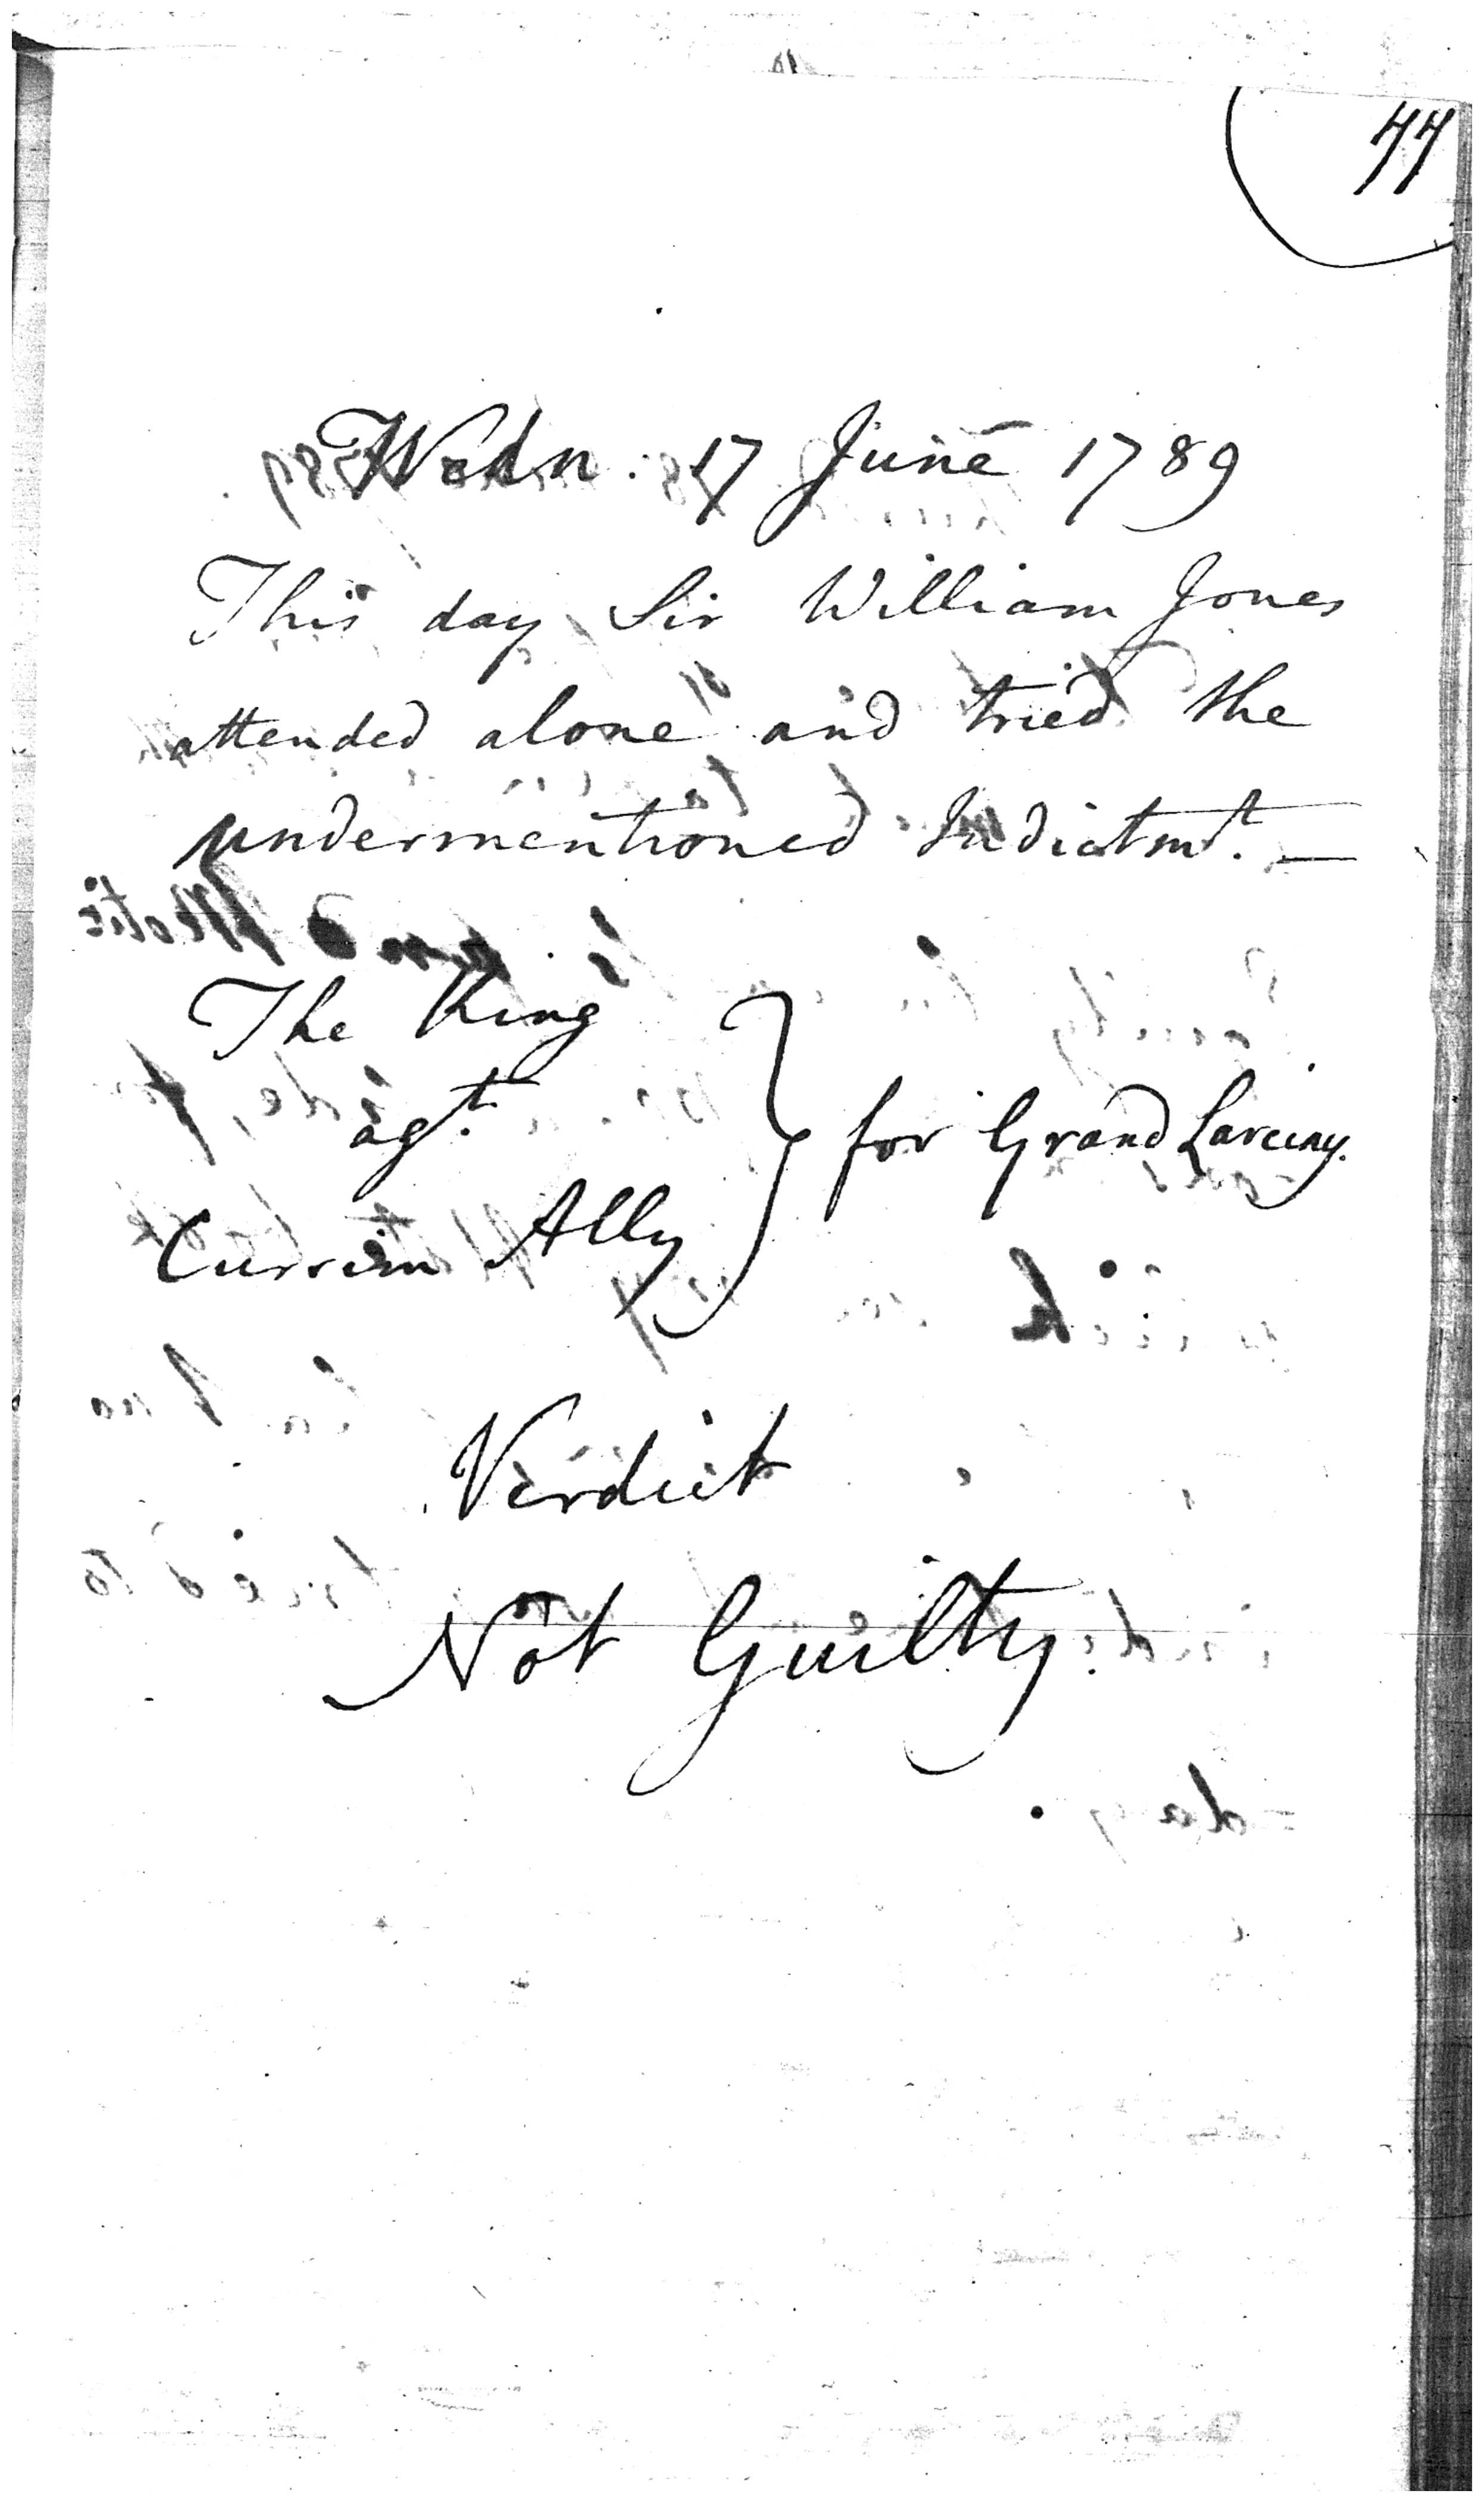 44
Wedn. 17 June 1789
This day Sir William Jones
attended alone and tried the
undermentioned Indictmt. —
The King
agt.
Currim Ally
} for Grand Larceny.
Verdict
Not Guilty.